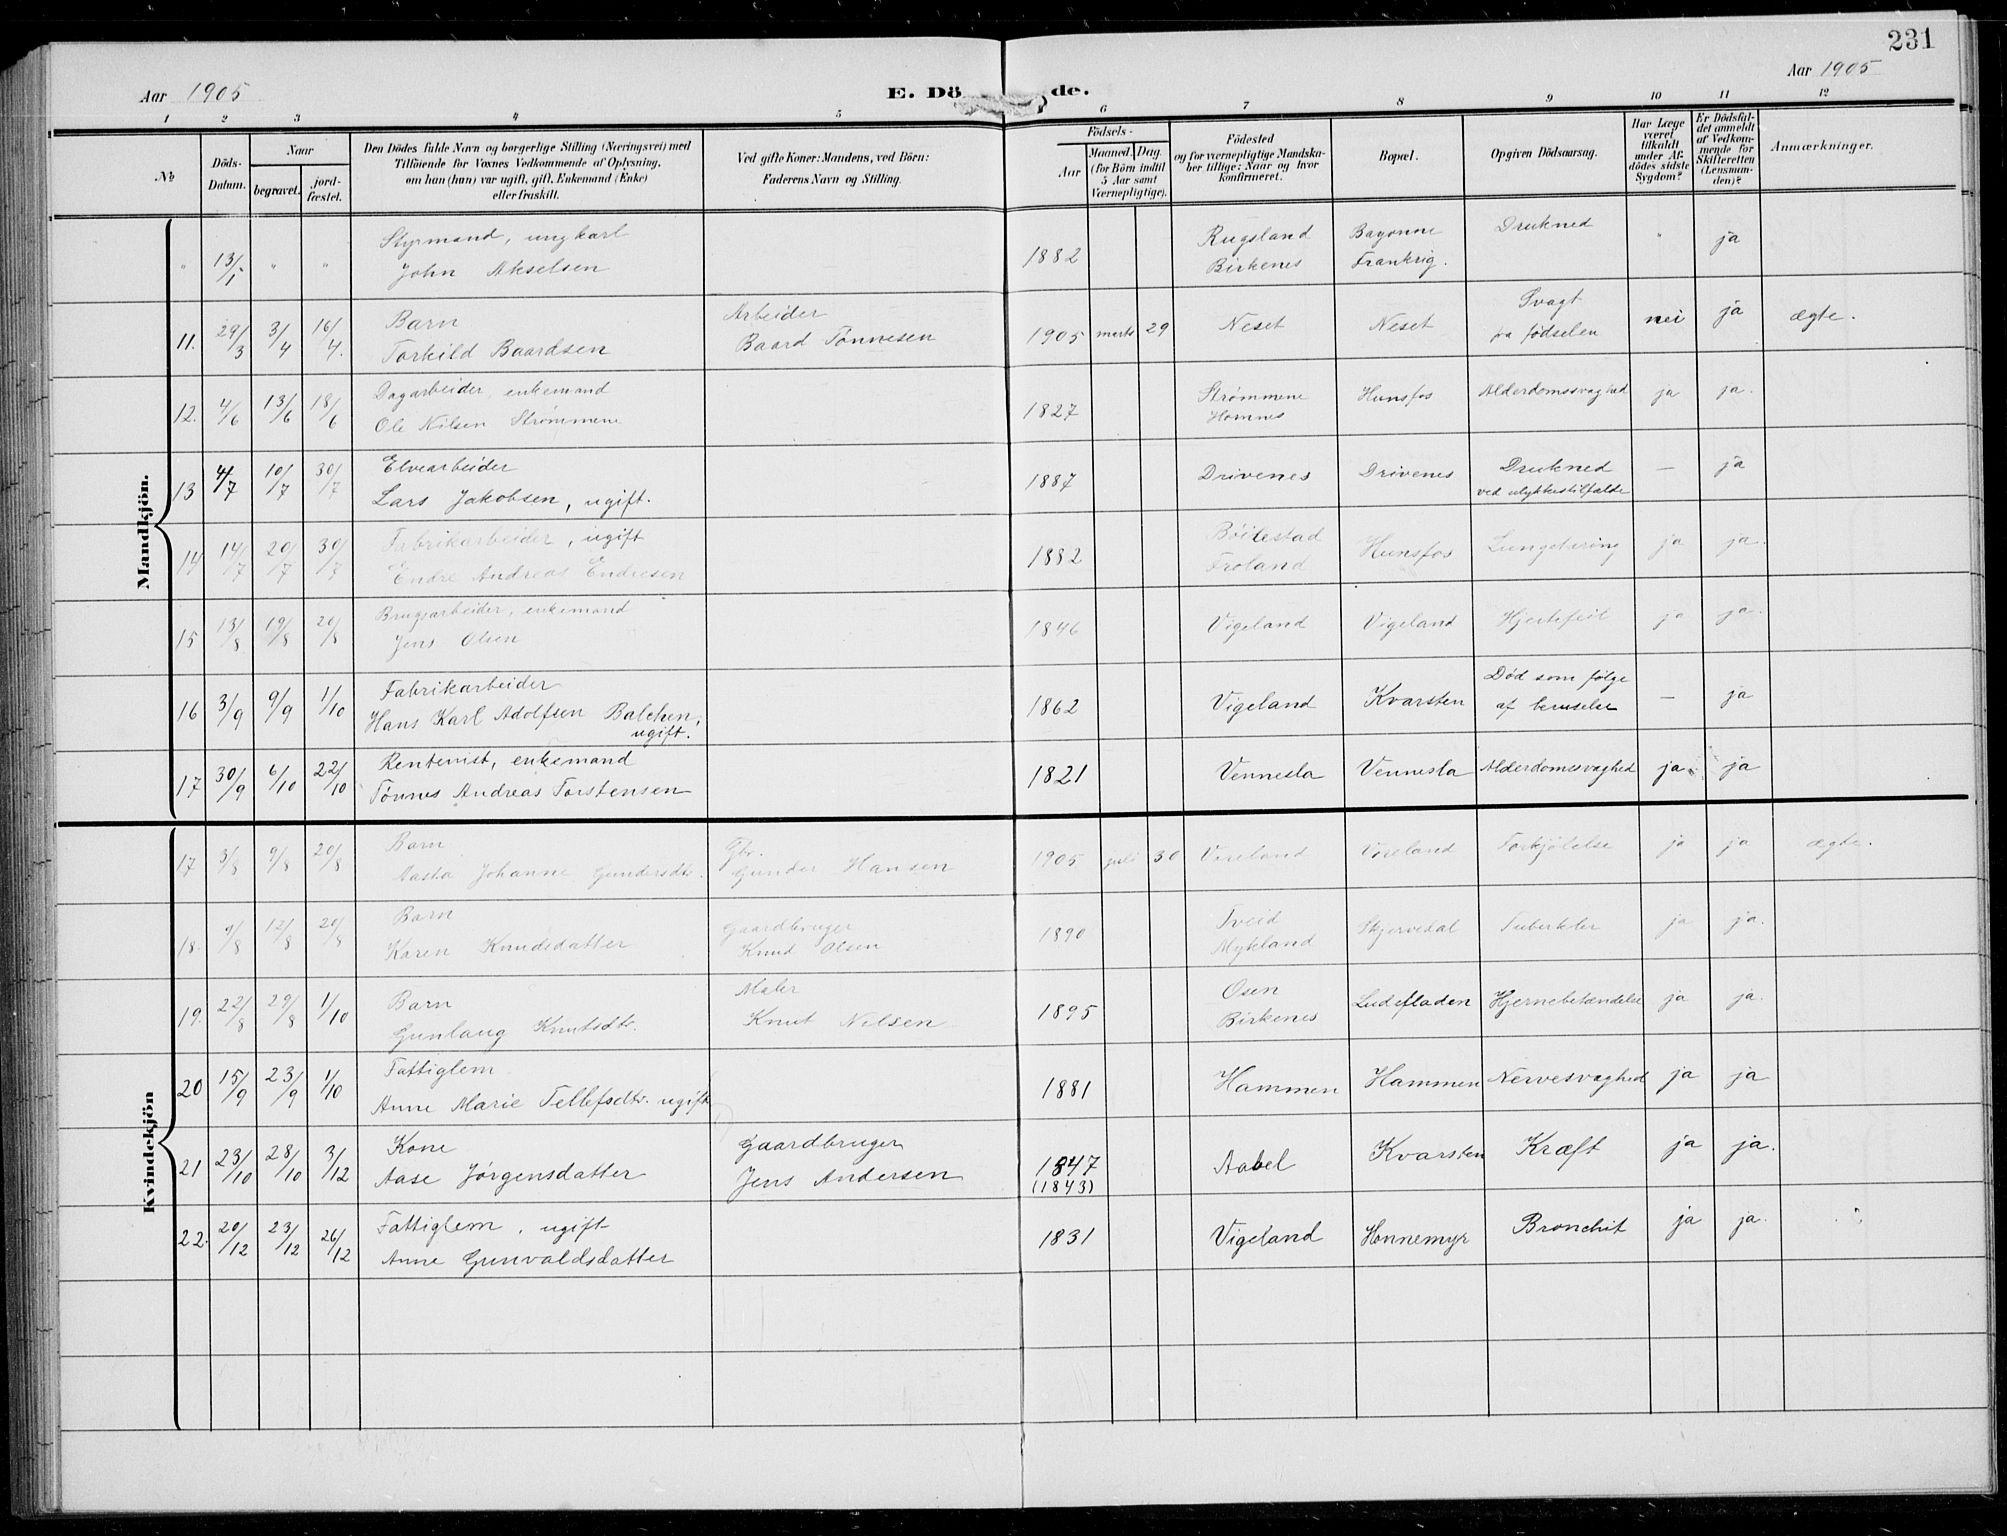 231
Aar 1905
E. Dö de.
Aar 1905
1 2 3 4 5 6 7 8 9 10 11 12
No
Döds-Datum.
Naar
begravet.
jord-fæstet.
Den Dödes fulde Navn og borgerlige Stilling (Næringsvei) med
Tilföiende for Voxnes Vedkommende af Oplysning,
om han (hun) var ugift, gift, Enkemand (Enke)
eller fraskilt.
Ved gifte Koner: Mandens, ved Börn:
Faderens Navn og Stilling.
Födsels-
Aar
Maaned. Dag.
(for Börn indtil
5 Aar samt
Værnepligtige).
Födested
og for værnepligtige Mandska-
ber tillige: Naar og hvor
konfirmeret.
Bopæl.
Opgiven Dödsaarsag.
Har Læge
været
tilkaldt
under Af-
dödes sidste
Sygdom?
Er Dödsfal-
det anmeldt
af Vedkom-
mende for
Skifteretten
(Lensman-
den)?
Anmærkninger.
Mandkjön.
" 13/1 " " Styrmand, ungkarl
John Akselsen 1882 Rugsland
Birkenes Bayonne
Frankrig. Drukned " ja
11. 29/3 3/4 16/4. Barn
Torkild Baardsen Arbeider
Baard Tønnesen 1905 marts 29 Neset Neset Svagt
fra fødselen nei ja ægte.
12. 4/6 13/6 18/6 Dagarbeider, enkemand
Ole Nilsen Strømmene 1827 Strømmene
Homnes Hunsfos Alderdomssvaghed ja ja.
13 4/7 10/7 30/7 Elvearbeider
Lars Jakobsen, ugift. 1887 Drivenes Drivenes Drukned
ved ulykkestilfælde — ja
14 14/7 20/7 30/7 Fabrikarbeider, ugift
Endre Andreas Endresen 1882 Bøilestad
Froland Hunsfos Lungetæring ja ja.
15 13/8 19/8 20/8 Brugsarbeider, enkemand
Jens Olsen 1846 Vigeland Vigeland Hjertefeil ja ja.
16 3/9 9/9 1/10 Fabrikarbeider
Hans Karl Adolfsen Balchen,
ugift. 1862 Vigeland Kvarsten Død som følge
af beruselse — ja
17 30/9 6/10 22/10 Rentenist, enkemand
Tønnes Andreas Torstensen 1821 Vennesla Vennesla Alderdomssvaghed ja ja
Kvindekjön
17 3/8 9/8 20/8 Barn
Aasta Johanne Gundersdtr. Gbr.
Gunder Hansen 1905 juli 30 Voreland Voreland Forkjølelse ja ja ægte.
18. 9/8 12/8 20/8 Barn
Karen Knudsdatter Gaardbruger
Knud Olsen 1890 Tveid
Mykland Skjervedal Tuberkler ja ja.
19. 22/8 29/8 1/10 Barn
Gunlaug Knutsdtr. Maler
Knut Nilsen 1895 Osen
Birkenes Ludefladen Hjernebetændelse ja ja.
20 15/9 23/9 1/10 Fattiglem
Anne Marie Tellefsdtr. ugift 1881 Hammen Hammen Nervesvaghed ja ja
21 23/10 28/10 3/12 Kone
Aase Jørgensdatter Gaardbruger
Jens Andersen 1847
(1843) Aabel Kvarsten Kræft ja ja.
22. 20/12 23/12 26/12 Fattiglem, ugift
Anne Gunvaldsdatter 1831 Vigeland Honnemyr Bronchit ja ja.